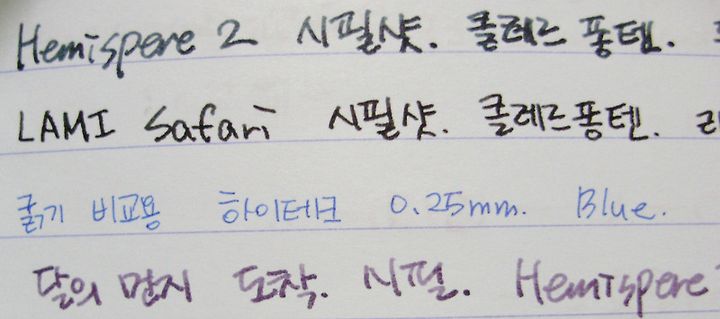 Hemispere 2 시필샷. 클레르 퐁텐.
LAMI Safari 시필샷. 클레르퐁텐.
굵기 비교용 하이테크 0.25mm. Blue.
달의 먼지 도착. 시필. Hemispere